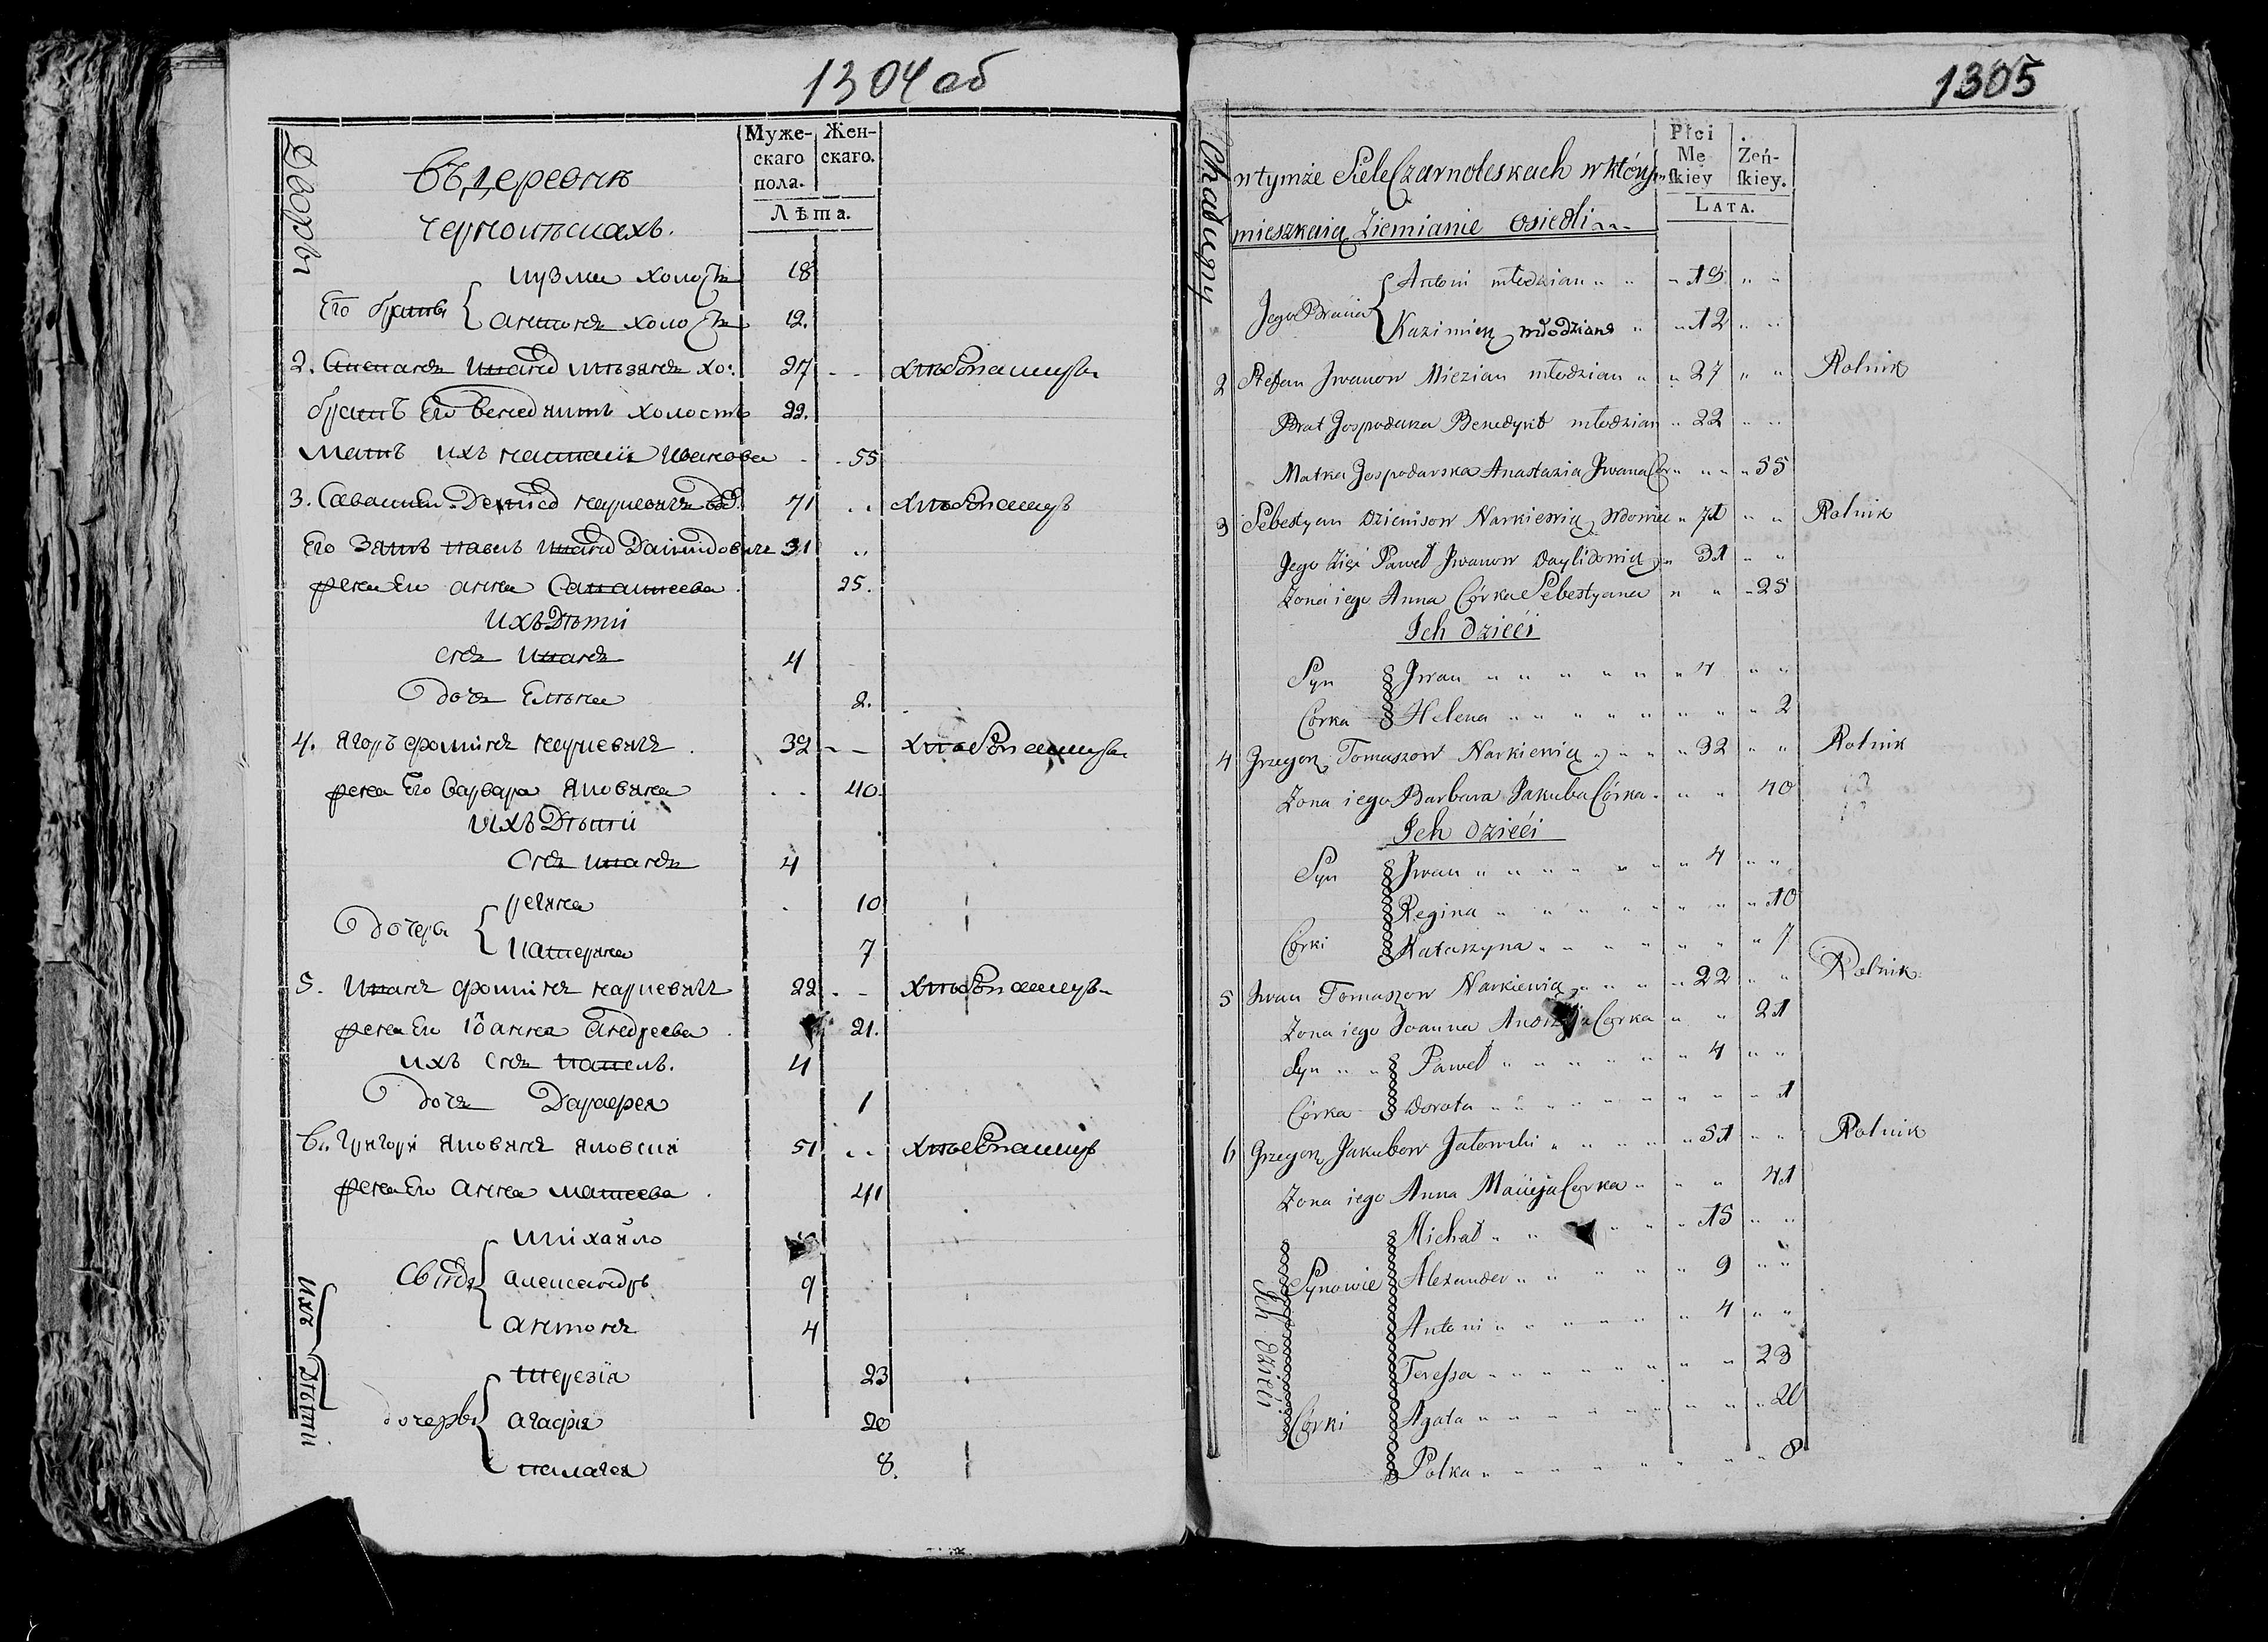 1304 об
Дворы
Въ деревнѣ
Чернолѣскахъ.
Муже-
скаго
пола.
Жен-
скаго.
Лѣта.
Кузма холостъ 18
Его братья
Антонъ холостъ 12.
2. Ивановъ хо: 27 - - хлѣбопашецъ
братъ Его Венедиктъ холостъ 22.
Мать ихъ Настасiя Иванова - - 55
3. Нарковичь вд: 71 .. хлѣбопашецъ
Его Зять Павелъ Ивановъ Даилидовичь 31 ..
жена Его Анна 25.
Ихъ Дѣти
Снъ Иванъ 4
Дочь Елѣна 2.
4. Ягоръ Фоминъ Наркевичь 32 - - хлѣбопашецъ
жена Его Варвара Яковлева .. 40.
Ихъ Дѣти
Снъ Иванъ 4
Регина 10
Дочери
Катерина 7
5. Иванъ Фоминъ Наркевичь 22 - - хлѣбопашецъ
жена Его Iоанна Андреева 21.
ихъ Снъ Павелъ. 4
Дочь 1
6. Григори Яковлевъ 51 .. хлѣбопашецъ
жена Его Анна Матеева 41
Михайло
Сыновья Александръ 9
Антонъ 4
Ихъ дѣти
Терезiя 23
дочерьи Агафiя 20
Палагея 8.
1305
Chałupy
w tymże Siele Czarnoleskach w których
mieszkaią Ziemianie osiedli
Płci
Mę
skiey
Żeń-
skiey.
LATA.
Antoni młodzian " " " 18 " "
Jego Bracia
Kazimierz młodzian " " 12 " "
2 Stefan Jwanow Miezian młodzian " " 27 " " Rolnik
Brat Gospodarza Benedykt młodzian " 22 " "
Matka Gospodarska Anastazia Jwana Cór " " " 55
3 Sebestyan Dzienisow Narkiewicz Wdowiec " 71 " " Rolnik
Jego Zięć Paweł Jwanow Daylidowicz " 31 " "
Zona iego Anna Córka Sebestyana " " " 25
Ich dzieći
Syn Jwan " " " " " " " 4 " "
Córka Helena " " " " " " " " " 2
4 Grzegorz Tomaszow Narkiewicz " " " " 32 " " Rolnik
Zona iego Barbara Jakuba Córka " " " 40
Ich dzieći
Syn Jwan " " " " " " " 4 " "
Regina " " " " " " " " " 10
Córki Katarzyna " " " " " " " " 7
5 Jwan Tomaszow Narkiewicz " " " " 22 " " Rolnik
Zona iego Joanna Andrzeja Córka " " 21
Syn " " Paweł " " " " " " 4 " "
Córka Dorota " " " " " " " " " 1
6 Grzegorz Jakubow Jałowski " " " " " 51 " " Rolnik
Zona iego Anna Macieja Córka " " " 41
Michał " " " " " 15 " "
Synowie Alexander " " " " " " 9 " "
Ich dzieći
Antoni " " " " " " " 4 " "
Teressa " " " " " " " " 23
Córki Agata " " " " " " " " " 20
Polka " " " " " " " " 8